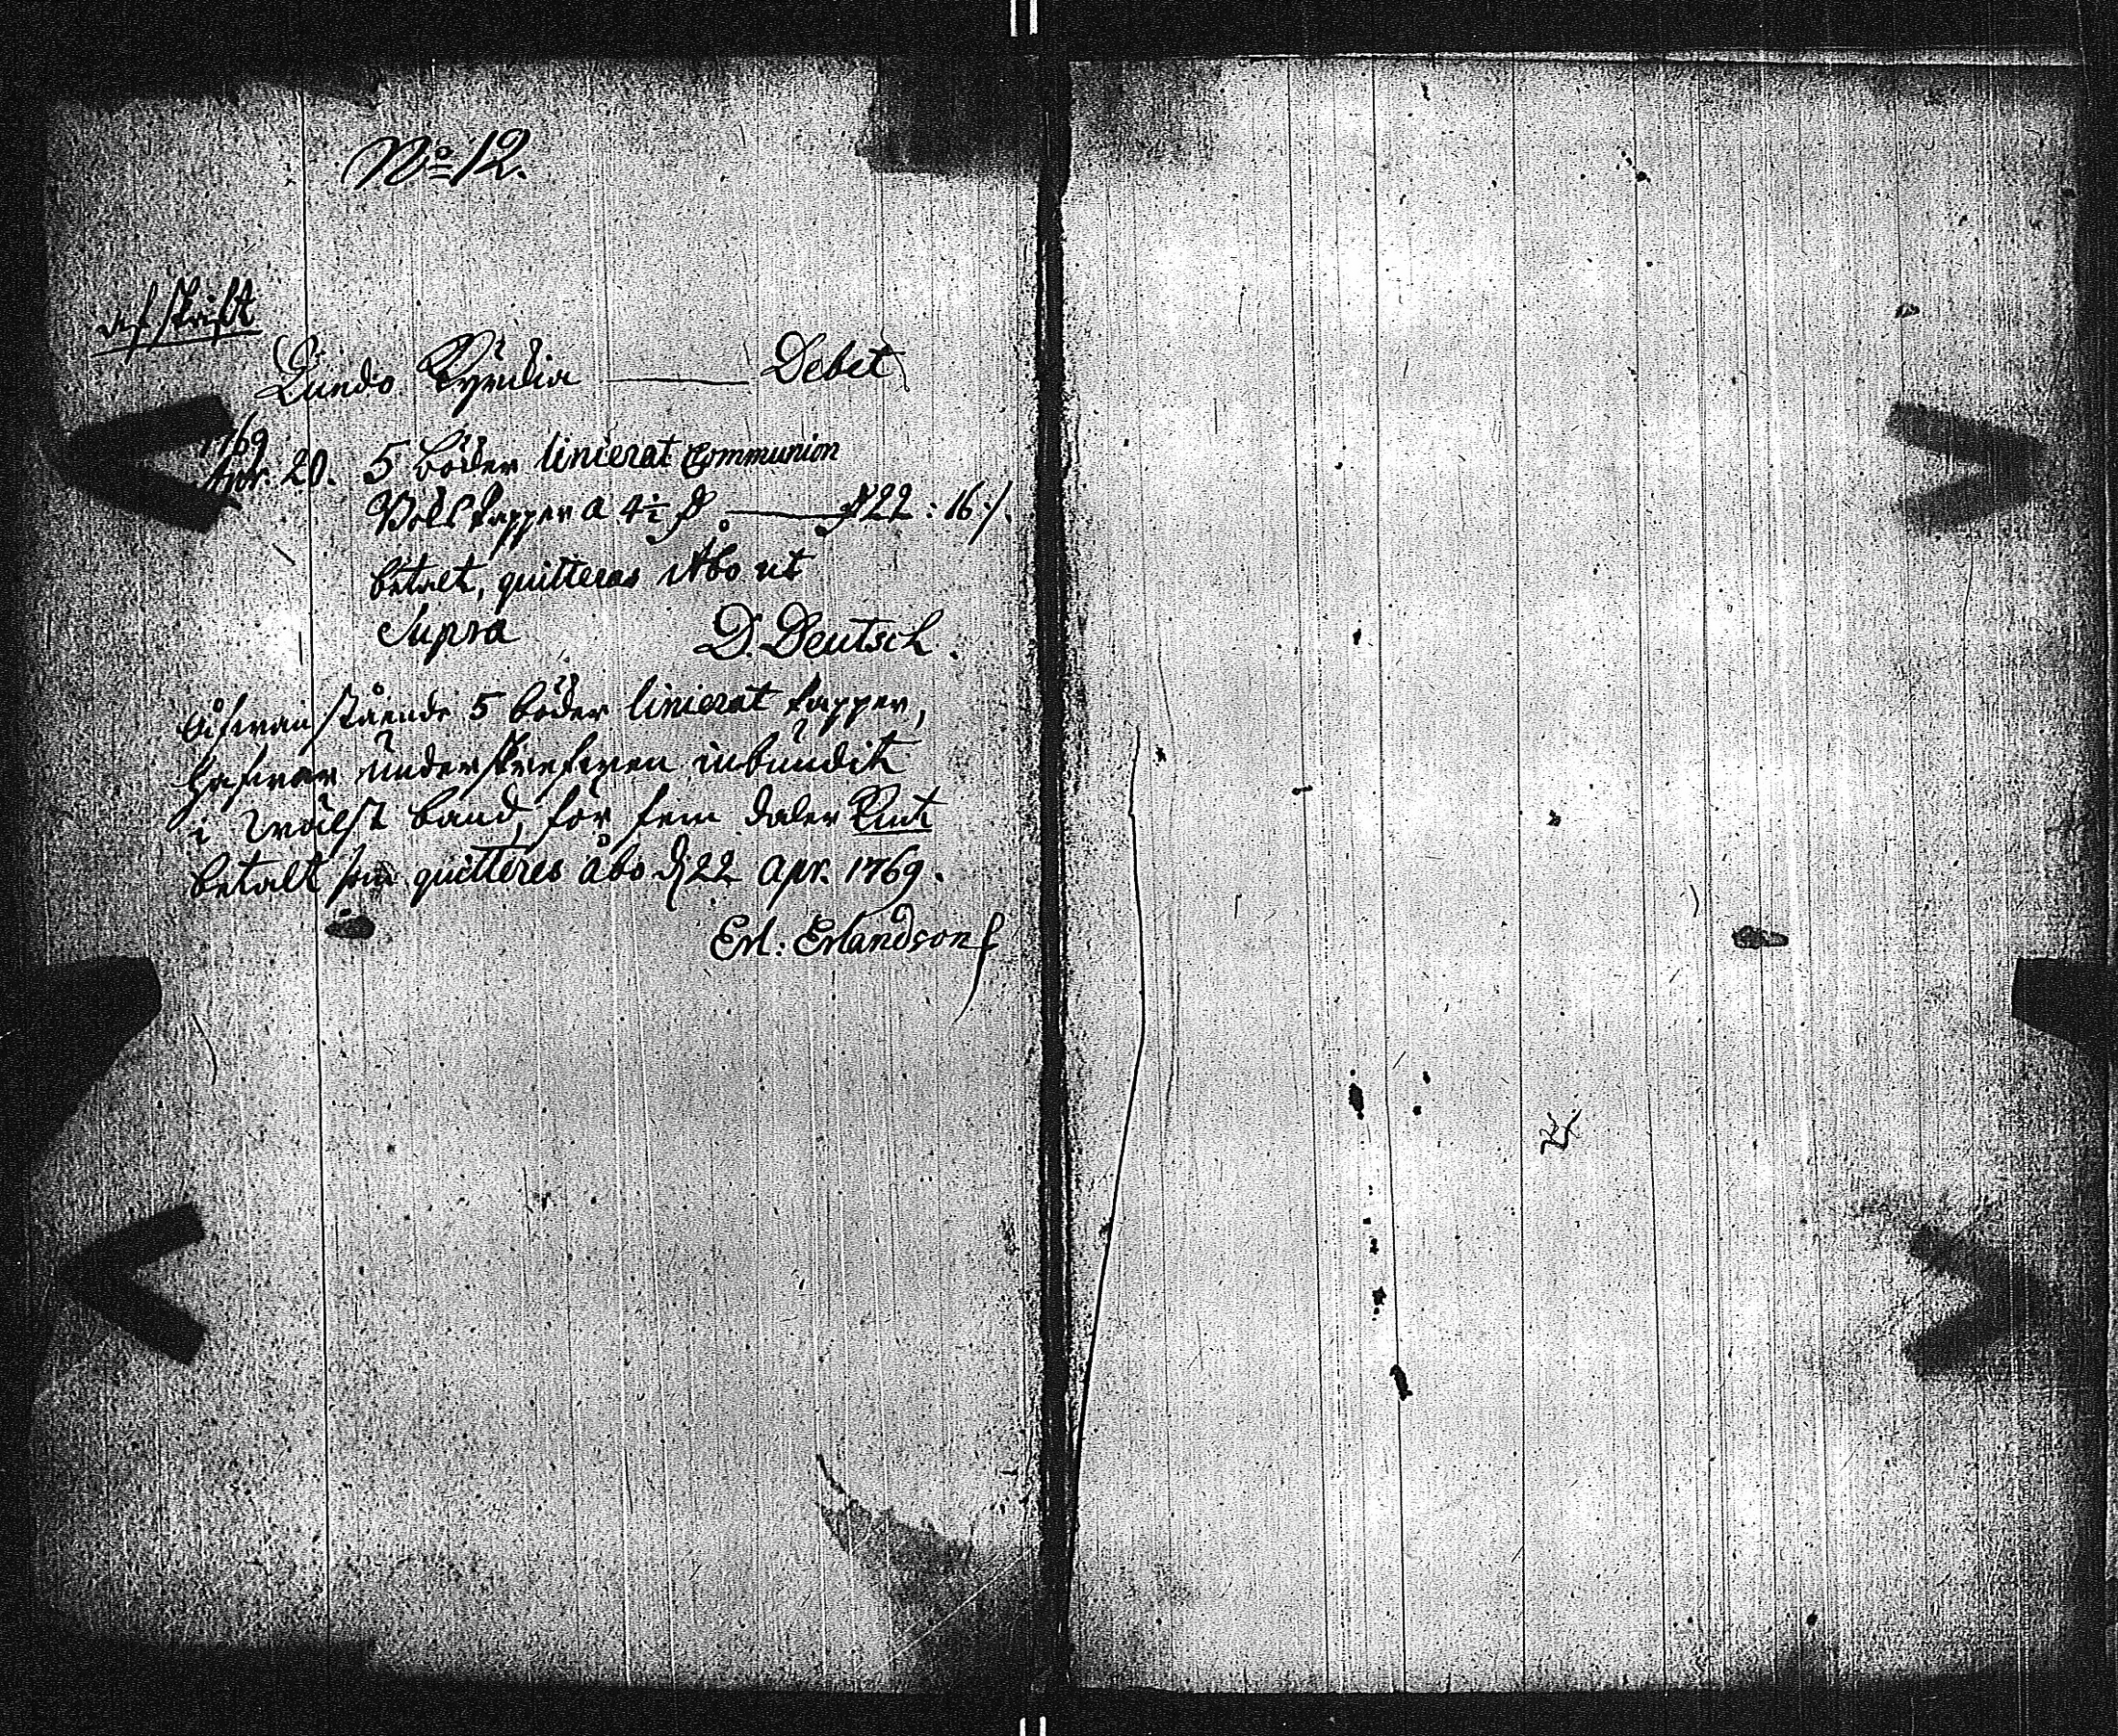 No 12.
Afskrift
Lundo Kyrckia Debet
1769
Apr. 20. 5 böcker linierat Communion
Boks papper a 4½ D 22 : 16 ./.
betalt, quitteras Åbo ut
Supra D. Deutsch.
Åfwanstående 5 böcker linierat papper,
hafwer underskrefwen inbundit
i Wälskt band, för fem daler Kmt
betalt som quitteres åbo d 22 apr. 1769.
Erl: Erlandson